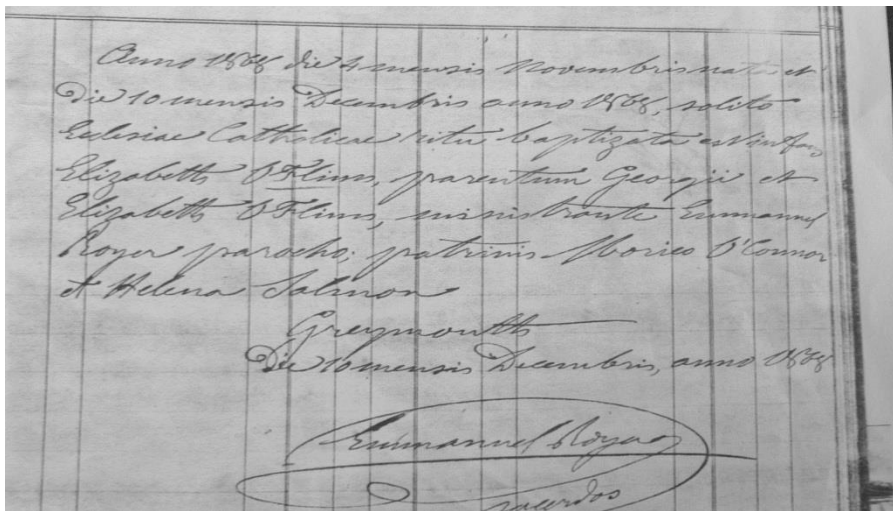 Anno 1868 die 4 mensis Novembris nata et
die 10 mensis Decembris anno 1868, solito
Eclesiae Catholicae ritu baptizata est infans
Elizabeth O'Flins, parentum Georgii et
Elizabeth O'Flins, ministrante Emmanuel
Royer parocho; patrinis Morico O'Connor
et Helena Salmon
Greymouth
Die 10 mensis Decembris, anno 1868
Emmanuel Royer
sacerdos